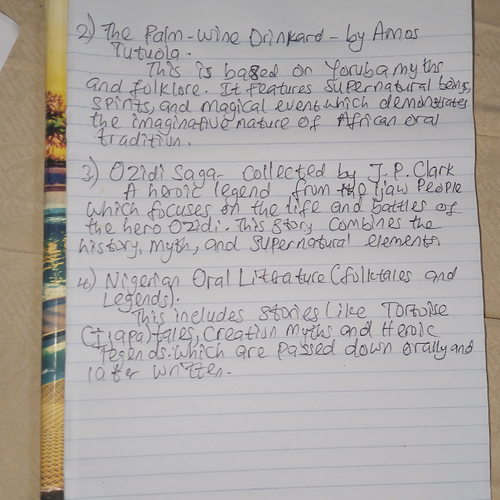 2) The Palm-Wine Drinkard - by Amos
Tutuola.
This is based on Yoruba myths
and folklore. It features supernatural being,
spirits, and magical event which demonstrates
the imaginative nature of African oral
tradition.
3) Ozidi Saga - collected by J.P. Clark
A heroic legend from the Ijaw People
which focuses on the life and battles of
the hero Ozidi. This story combines the
history, myth, and supernatural elements.
4) Nigerian Oral Literature (folktales and
Legends).
This includes stories like Tortoise
(Ijapa) tales, Creation myths and Heroic
legends. which are passed down orally and
later written.